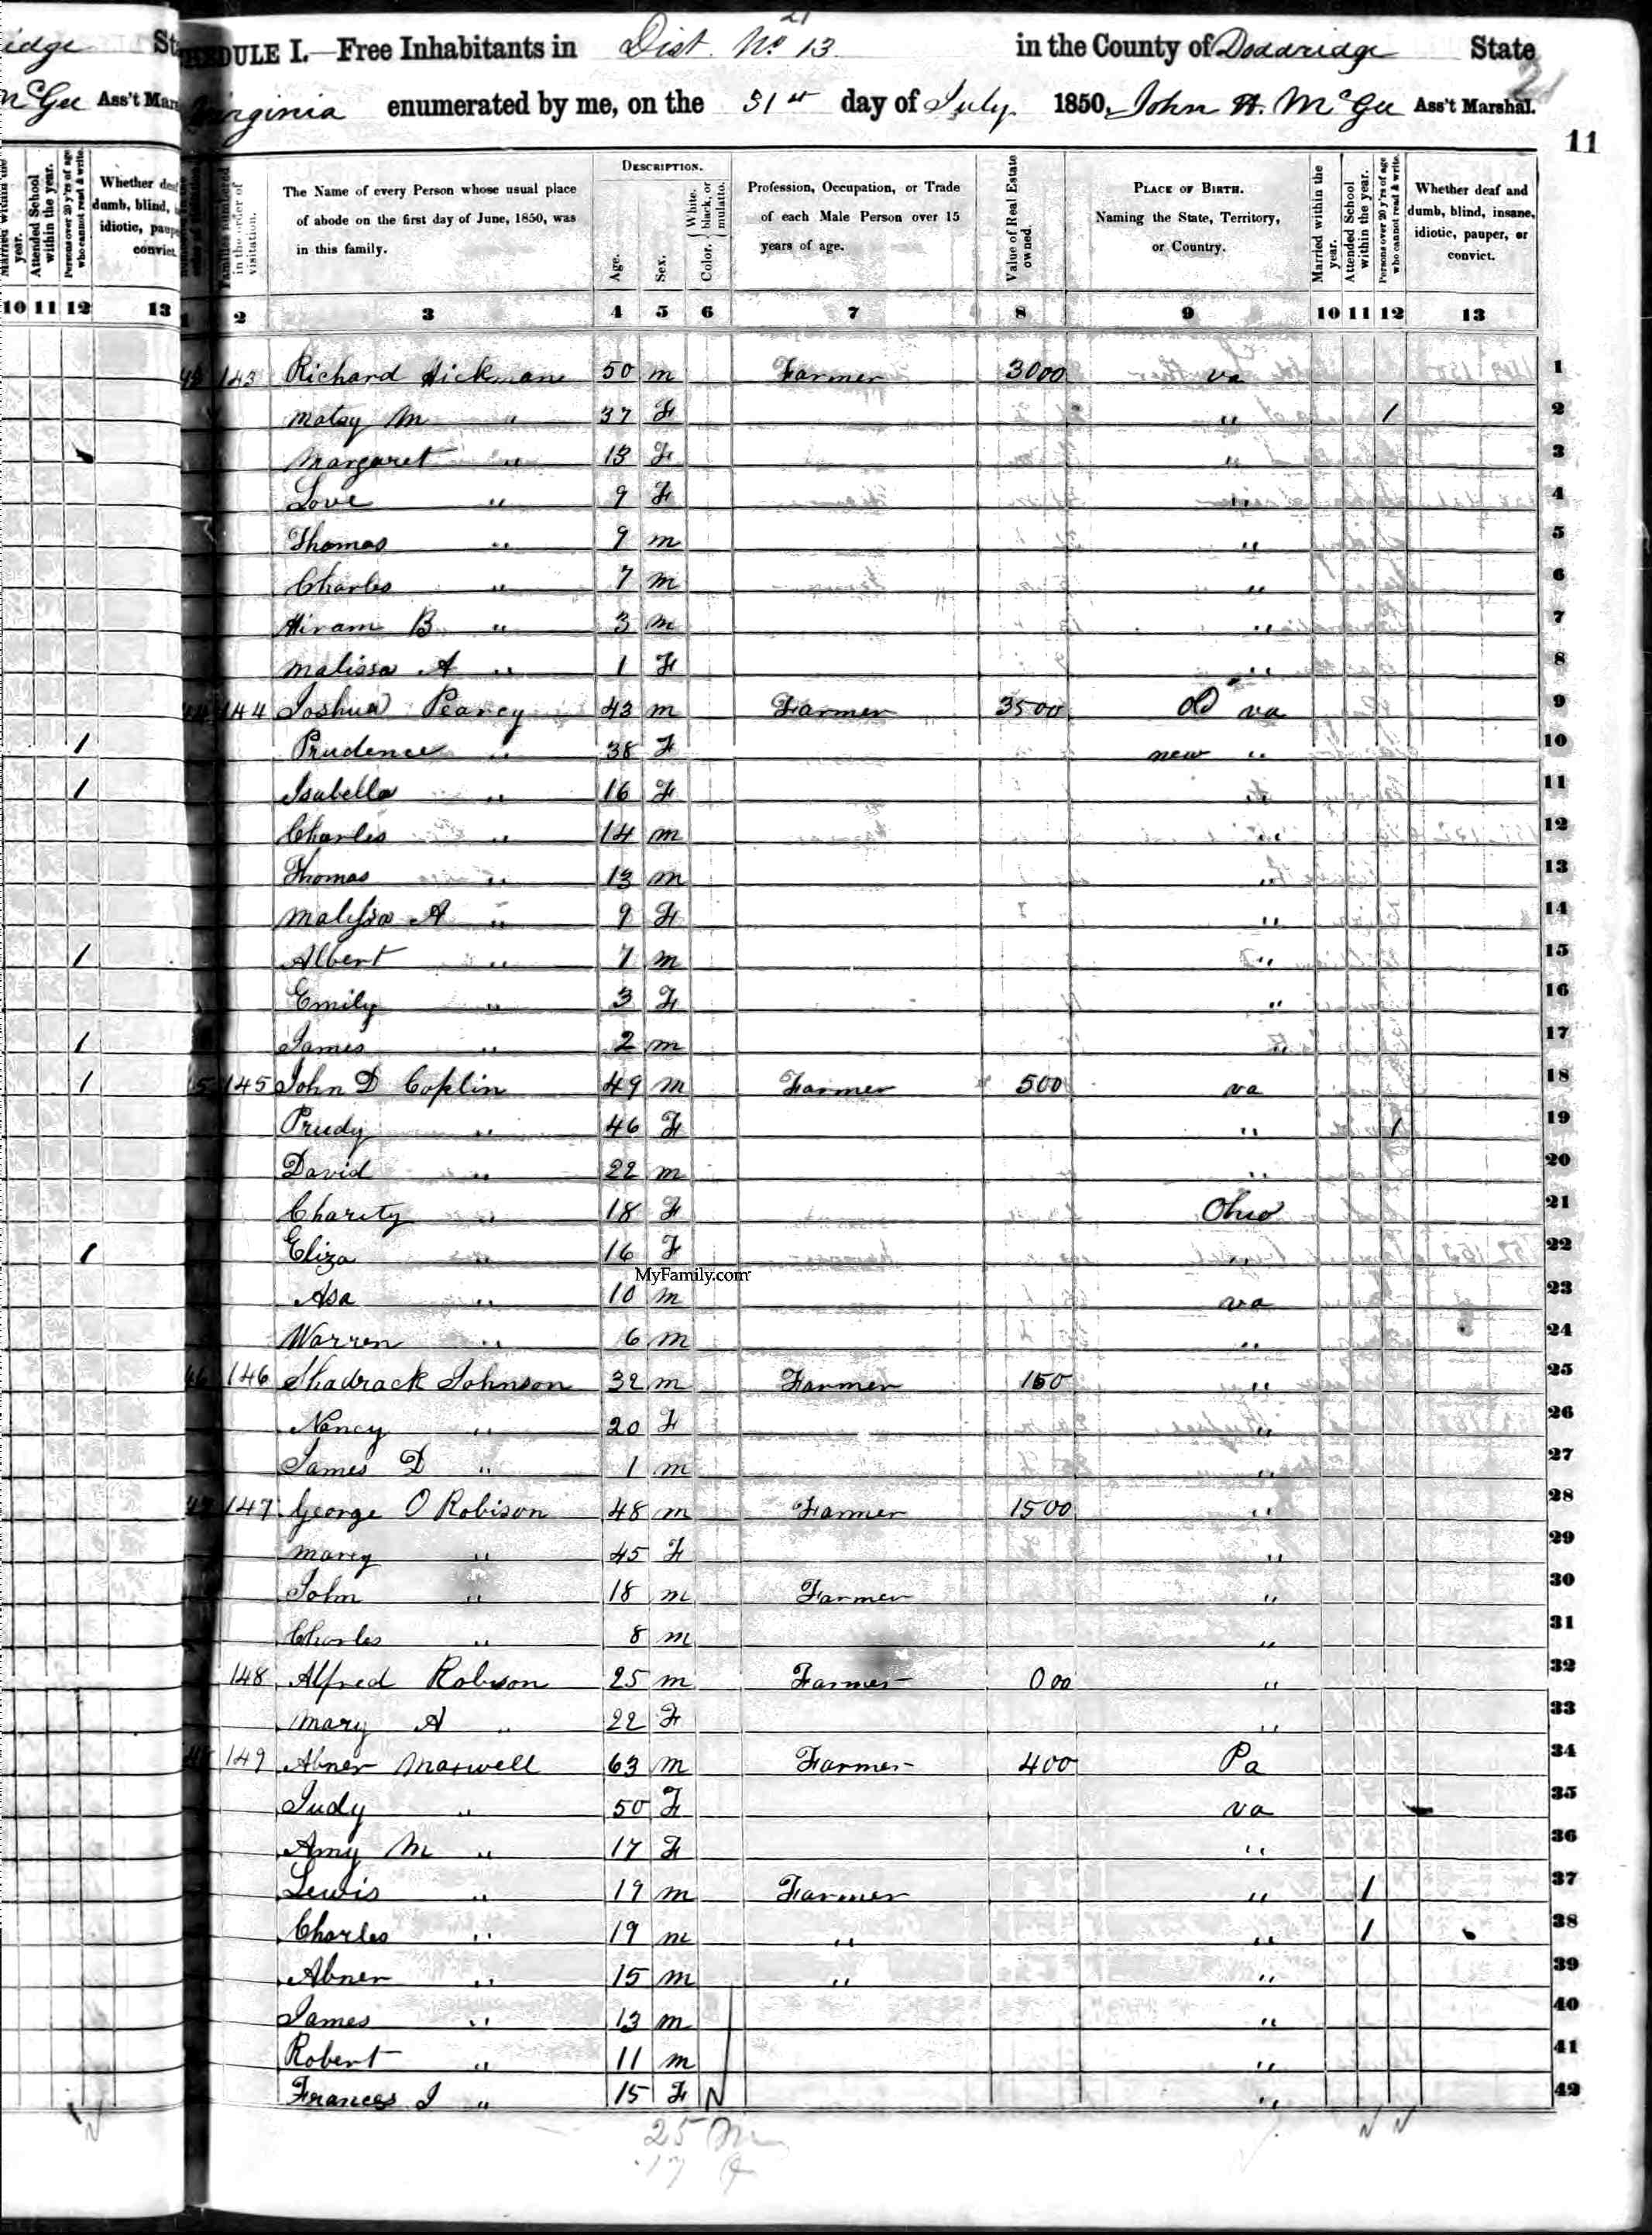 idge St
McGee Ass't Mar
Married within the year.
Attended School within the year.
Persons over 20 y'rs of age who cannot read & write.
Whether deaf
dumb, blind,
idiotic, paup
convict.
10 11 12 13
1
1
1
1
1
1
EDULE I.—Free Inhabitants in Dist. No 13 in the County of Doddridge State
21
Virginia enumerated by me, on the 31st day of July 1850, John H. McGee Ass't Marshal.
11
Families numbered in the order of visitation.
The Name of every Person whose usual place of abode on the first day of June, 1850, was in this family.
Description.
Age.
Sex.
Color, { White, black, or mulatto.
Profession, Occupation, or Trade of each Male Person over 15 years of age.
Value of Real Estate owned.
Place of Birth. Naming the State, Territory, or Country.
Married within the year.
Attended School within the year.
Persons over 20 y'rs of age who cannot read & write.
Whether deaf and dumb, blind, insane, idiotic, pauper, or convict.
1 2 3 4 5 6 7 8 9 10 11 12 13
143 Richard Hickman 50 m Farmer 3000 va 1
Matsy M " 37 F " 1 2
Margaret " 13 F " 3
Love " 9 F " 4
Thomas " 9 m " 5
Charles " 7 m " 6
Hiram B " 3 m " 7
Malissa A " 1 F " 8
144 Joshua Pearcy 43 m Farmer 3500 Old va 9
Prudence " 38 F new " 10
Isabella " 16 F " 11
Charles " 14 m " 12
Thomas " 13 m " 13
Malissa A " 9 F " 14
Albert " 7 m " 15
Emily " 3 F " 16
James " 2 m " 17
145 John D Coplin 49 m Farmer 500 va 18
Prudy " 46 F " 1 19
David " 22 m " 20
Charity " 18 F Ohio 21
Eliza " 16 F " 22
MyFamily.com
Asa " 10 m va 23
Warren " 6 m " 24
146 Shadrack Johnson 32 m Farmer 150 " 25
Nancy " 20 F " 26
James D " 1 m " 27
147 George O Robison 48 m Farmer 1500 " 28
Marey " 45 F " 29
John " 18 m Farmer " 30
Charles " 8 m " 31
148 Alfred Robison 25 m Farmer 000 " 32
Mary A " 22 F " 33
149 Abner Maxwell 63 m Farmer 400 Pa 34
Judy " 50 F va 35
Amy M " 17 F " 36
Lewis " 19 m Farmer " 1 37
Charles " 19 m " " 1 38
Abner " 15 m " " 39
James " 13 m " 40
Robert " 11 m " 41
Frances J " 15 F " 42
25 m
17 f